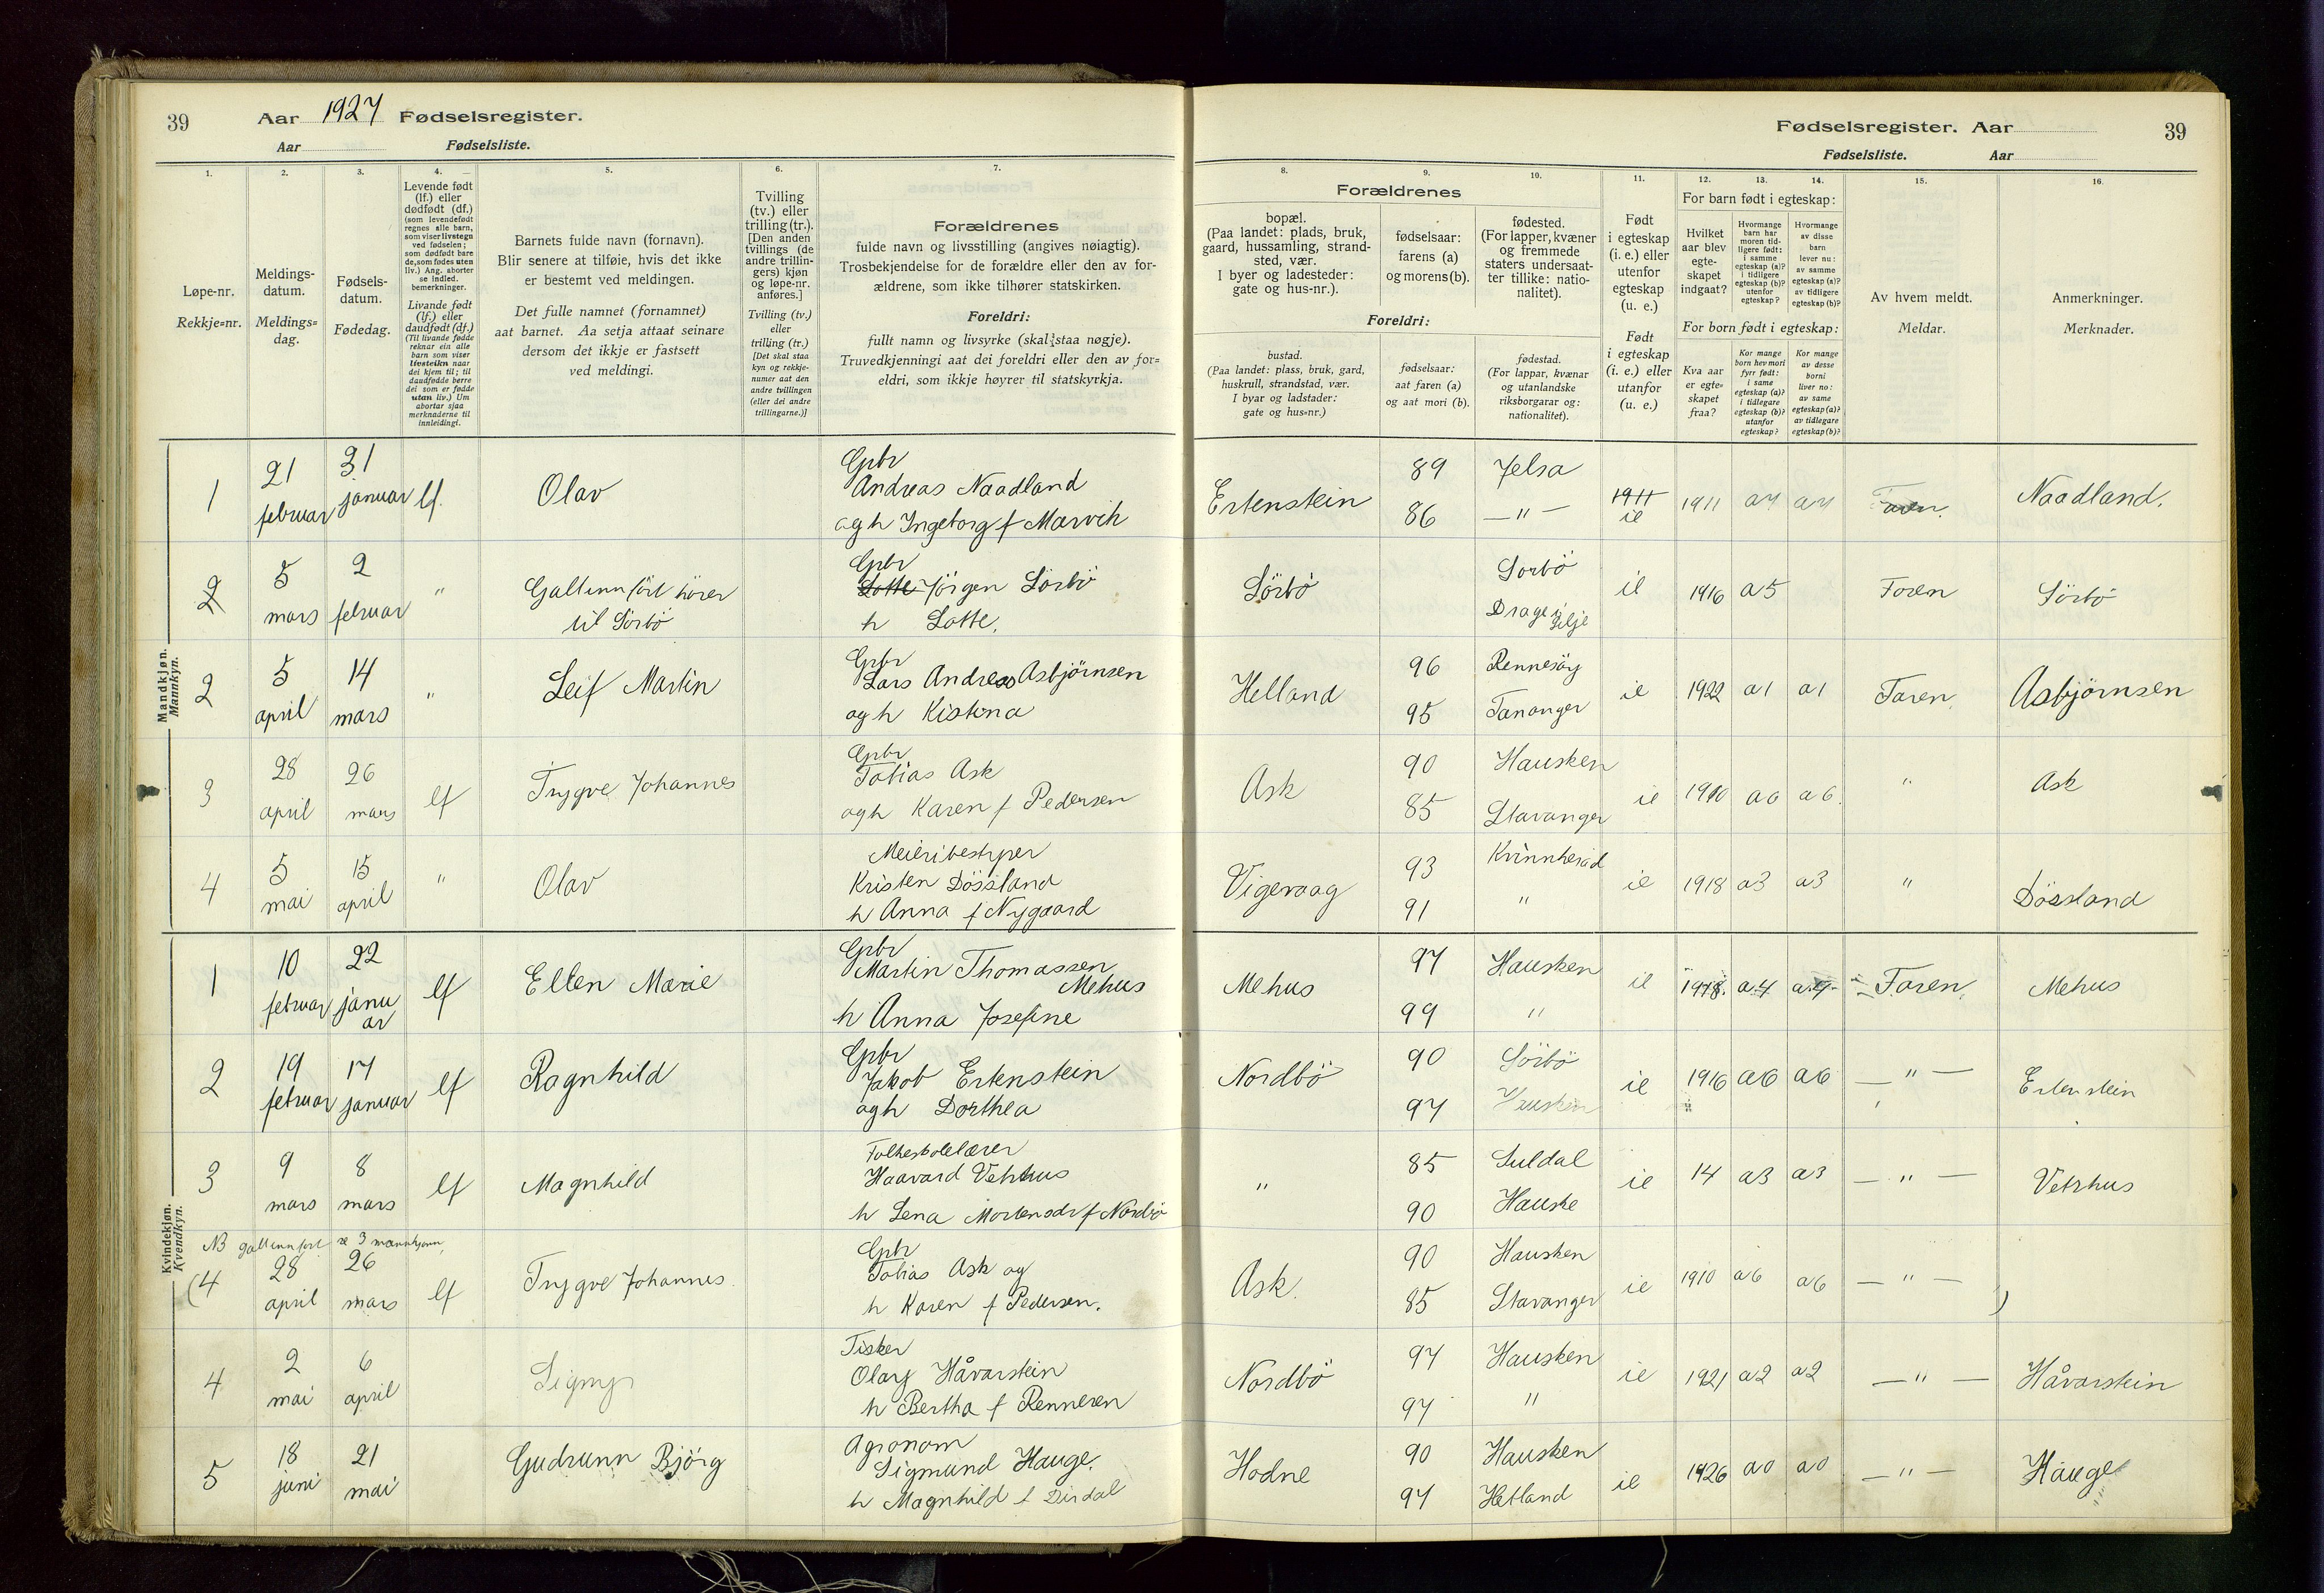 39 Aar 1927 Fødselsregister.
Aar Fødselsliste.
Fødselsregister. Aar 39
Fødselsliste. Aar
1. 2. 3. 4. 5. 6. 7. 8. 9. 10. 11. 12. 13. 14. 15. 16.
Løpe-nr.
Rekkje=nr.
Meldings-
datum.
Meldings=
dag.
Fødsels-
datum.
Fødedag.
Levende født
(lf.) eller
dødfødt (df.)
(som levendefødt
regnes alle barn,
som viser livstegn
ved fødselen;
som dødfødt bare
de, som fødes uten
liv.) Ang. aborter
se indled.
bemerkninger.
Livande født
(lf.) eller
daudfødt (df.)
(Til livande fødde
reknar ein alle
barn som viser
livsteikn naar
dei kjem til; til
daudfødde berre
dei som er fødde
utan liv.) Um
abortar sjaa
merknaderne til
innleidingi.
Barnets fulde navn (fornavn).
Blir senere at tilføie, hvis det ikke
er bestemt ved meldingen.
Det fulle namnet (fornamnet)
aat barnet. Aa setja attaat seinare
dersom det ikkje er fastsett
ved meldingi.
Tvilling
(tv.) eller
trilling (tr.).
[Den anden
tvillings (de
andre trillin-
gers) kjøn
og løpe-nr.
anføres.]
Tvilling (tv.)
eller
trilling (tr.)
[Det skal staa
kyn og rekkje-
numer aat den
andre tvillingen
(eller dei andre
trillingarne.)]
Forældrenes
fulde navn og livsstilling (angives nøiagtig).
Trosbekjendelse for de forældre eller den av for-
ældrene, som ikke tilhører statskirken.
Foreldri:
fullt namn og livsyrke (skal staa nøgje).
Truvedkjenningi aat dei foreldri eller den av for=
eldri, som ikkje høyrer til statskyrkja.
Forældrenes
bopæl.
(Paa landet: plads, bruk,
gaard, hussamling, strand-
sted, vær.
I byer og ladesteder:
gate og hus-nr.).
fødselsaar:
farens (a)
og morens (b).
fødested.
(For lapper, kvæner
og fremmede
staters undersaat-
ter tillike: natio-
nalitet).
Foreldri:
bustad.
(Paa landet: plass, bruk, gard,
huskrull, strandstad, vær.
I byar og ladstader:
gate og hus-nr.)
fødselsaar:
aat faren (a)
og aat mori (b).
fødestad.
(For lappar, kvænar
og utanlandske
riksborgarar og:
nationalitet).
Født
i egteskap
(i. e.) eller
utenfor
egteskap
(u. e.)
Født
i egteskap
(i. e.) eller
utanfor
(u. e.)
For barn født i egteskap:
Hvilket
aar blev
egte-
skapet
indgaat?
Hvormange
barn har
moren tid-
ligere født:
i samme
egteskap (a)?
i tidligere
egteskap (b)?
utenfor
egteskap?
Hvormange
av disse
barn
lever nu:
av samme
egteskap (a)?
av tidligere
egteskap (b)?
For born født i egteskap:
Kva aar
er egte-
skapet
fraa?
Kor mange
born hev mori
fyrr født:
i same
egteskap (a)?
i tidlegare
egteskap (b)?
utanfor
egteskap?
Kor mange
av desse
borni
liver no:
av same
egteskap (a)?
av tidlegare
egteskap (b)?
Av hvem meldt.
Meldar.
Anmerkninger.
Merknader.
Mandkjøn.
Mannkyn.
1 21 februar 31 januar lf. Olav Gpbr Andreas Naadland og h Ingeborg f Marvik Ertenstein 89 86 Jelsa —"— 1911 ie 1911 a7 a7 Faren. Naadland.
2 5 mars 2 februar " Galt innfört hörer til Sörbö Gpbr Lotte Jörgen Sörbö h Lotte. Sörbö Sorbö Drage i Gilje ie 1916 a5 Faren Sörbö
2 5 april 14 mars " Leif Martin Gpbr Lars Andreas Asbjörnsen og h Kistina Helland 96 95 Rennesöy Tananger ie 1922 a1 a1 Faren. Asbjörnsen
3 28 april 26 mars lf Trygve Johannes Gpbr Tobias Ask og h Karen f Pedersen Ask 90 85 Hausken Stavanger ie 1910 a6 a6. " Ask
4 5 mai 15 april " Olav Meieribestyrer Kristen Dössland h Anna f Nygaard Vigevaag 93 91 Kvinnherad " ie 1918 a3 a3 " Dössland
Kvindekjøn.
Kvendkyn.
1 10 februar 22 januar lf Ellen Marie Gpbr Martin Thomassen Mehus h Anna Josefine Mehus 97 99 Hausken " ie 1918. a4 a4 Faren. Mehus
2 19 februar 17 januar lf Ragnhild Gpbr Jakob Ertenstein og h Dorthea Nordbö 90 97 Sörbö Hausken ie 1916 a6 a6 —"— Ertenstein
3 9 mars 8 mars lf Magnhild Folkeskolelærer Haavard Vetrhus h Lena Mortensdr f Nordbö " 85 90 Suldal Hauske ie 14 a3 a3 —"— Vetrhus
NB galt innfört se 3 mannkjønn,
(4 28 april 26 mars lf Trygve Johannes. Gpbr Tobias Ask og h Karen f Pedersen. Ask. 90 85 Hausken Stavanger ie 1910 a6 a6 —"— )
4 2 mai 6 april Signy Fisker Olav Håvarstein h Bertha f Renneren Nordbö 97 97 Hausken " ie 1921 a2 a2 —"— Håvarstein
5 18 juni 21 mai Gudrunn Björg Agronom Sigmund Hauge. h Magnhild f Dirdal Hodne 90 97 Hausken Hetland ie 1926 a0 a0 —"— Hauge